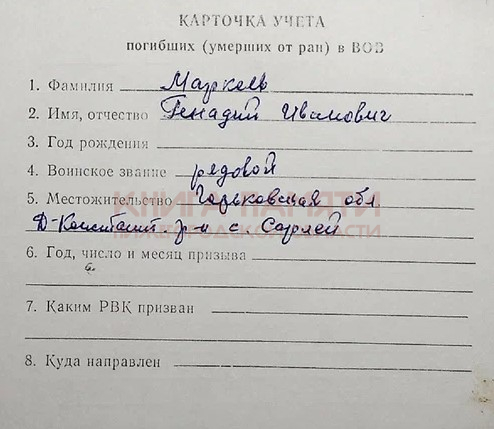 КАРТОЧКА УЧЕТА
погибших (умерших от ран) в ВОВ
1. Фамилия Маркеев
2. Имя, отчество Генадий Иванович
3. Год рождения
4. Воинское звание рядовой
5. Местожительство Горьковская обл
КНИГА ПАМЯТИ
Д-Констант. р-н с. Сарлей
НИЖЕГОРОДСКОЙ ОБЛАСТИ
6. Год, число и месяц призыва
7. Каким РВК призван
8. Куда направлен